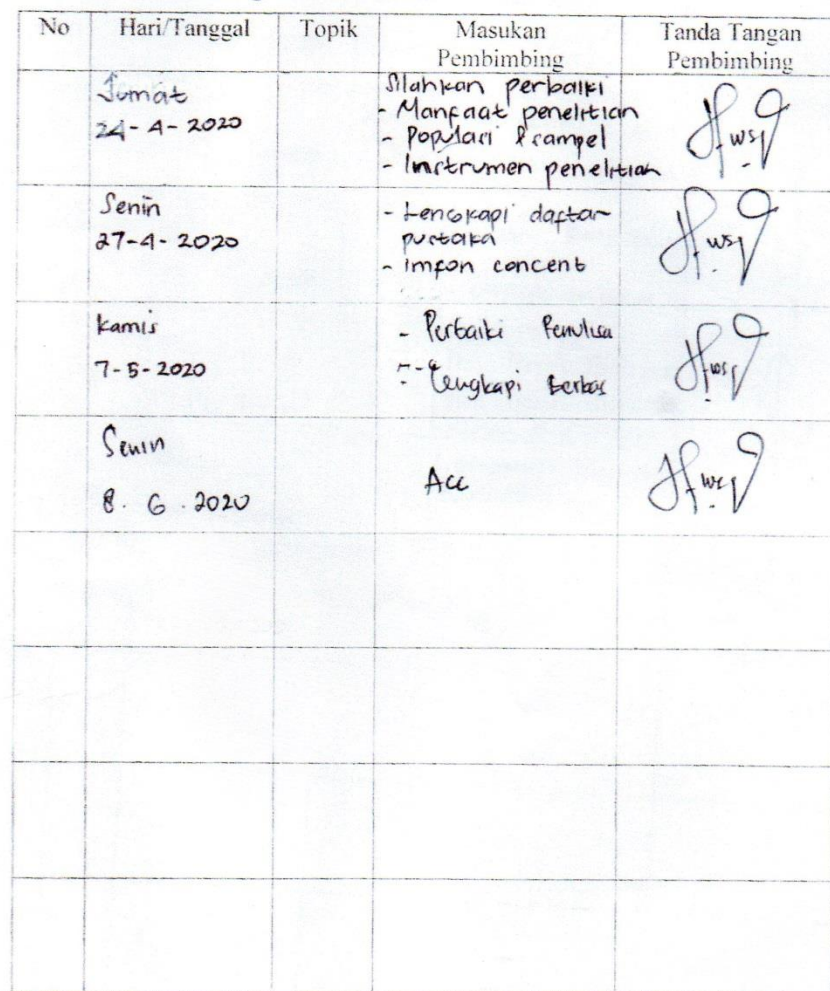 No Hari/Tanggal Topik Masukan Pembimbing Tanda Tangan Pembimbing
Jumat
24-4-2020
Silahkan perbaiki
- Manfaat penelitian
- Populasi & sampel
- Instrumen penelitian
Senin
27-4-2020
- Lengkapi daftar
pustaka
- imfon concent
Kamis
7-5-2020
- Perbaiki Penulisa
- Lengkapi Berkas
Senin
8. 6. 2020
Acc